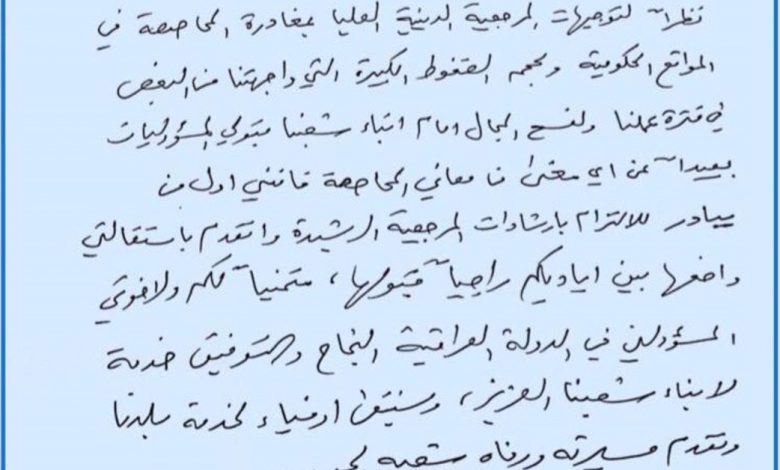 نظراً لتوجيهات المرجعية الدينية العليا بمغادرة المحاصصة في
المواقع الحكومية ولحجم الضغوط الكبيرة التي واجهتنا من البعض
في فترة عملنا ولفسح المجال امام ابناء شعبنا بتولي المسؤوليات
بعيداً عن اي معنىً من معاني المحاصصة فانني اول من
يبادر للالتزام بارشادات المرجعية الرشيدة واتقدم باستقالتي
واضعها بين اياديكم راجياً قبولها، متمنياً لكم ولاخوتي
المسؤولين في الدولة العراقية النجاح والتوفيق خدمة
لابناء شعبنا العزيز، وسنبقى اوفياء لخدمة بلدنا
وتقدم مسيرته ورفاه شعبه